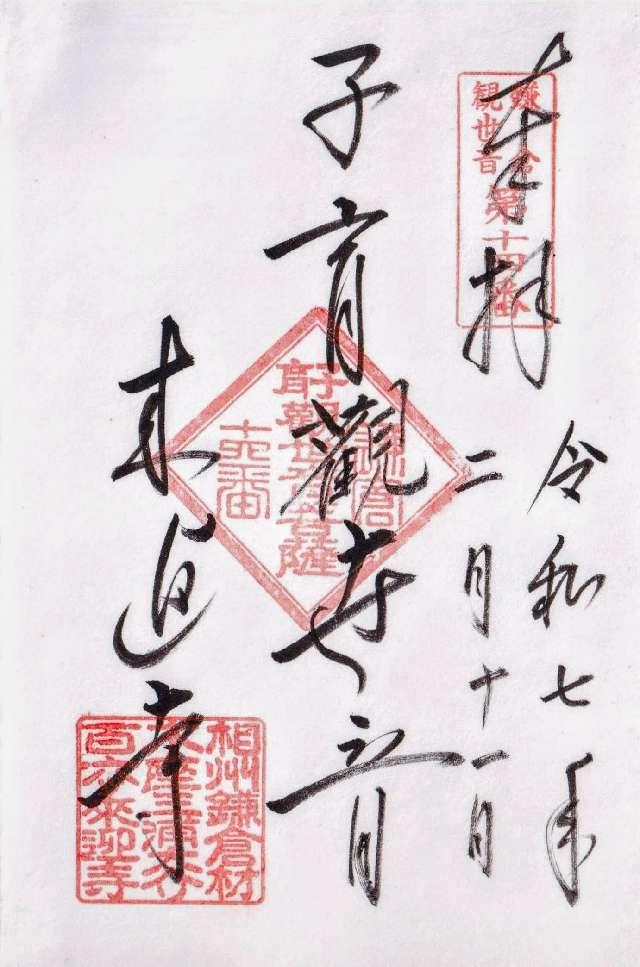 奉拝
鎌倉
観世音
第十四番
令和七年
二月十一日
子育觀世音
鎌倉
子育觀世音菩薩
十四番
来迎寺
相州鎌倉材
来迎寺